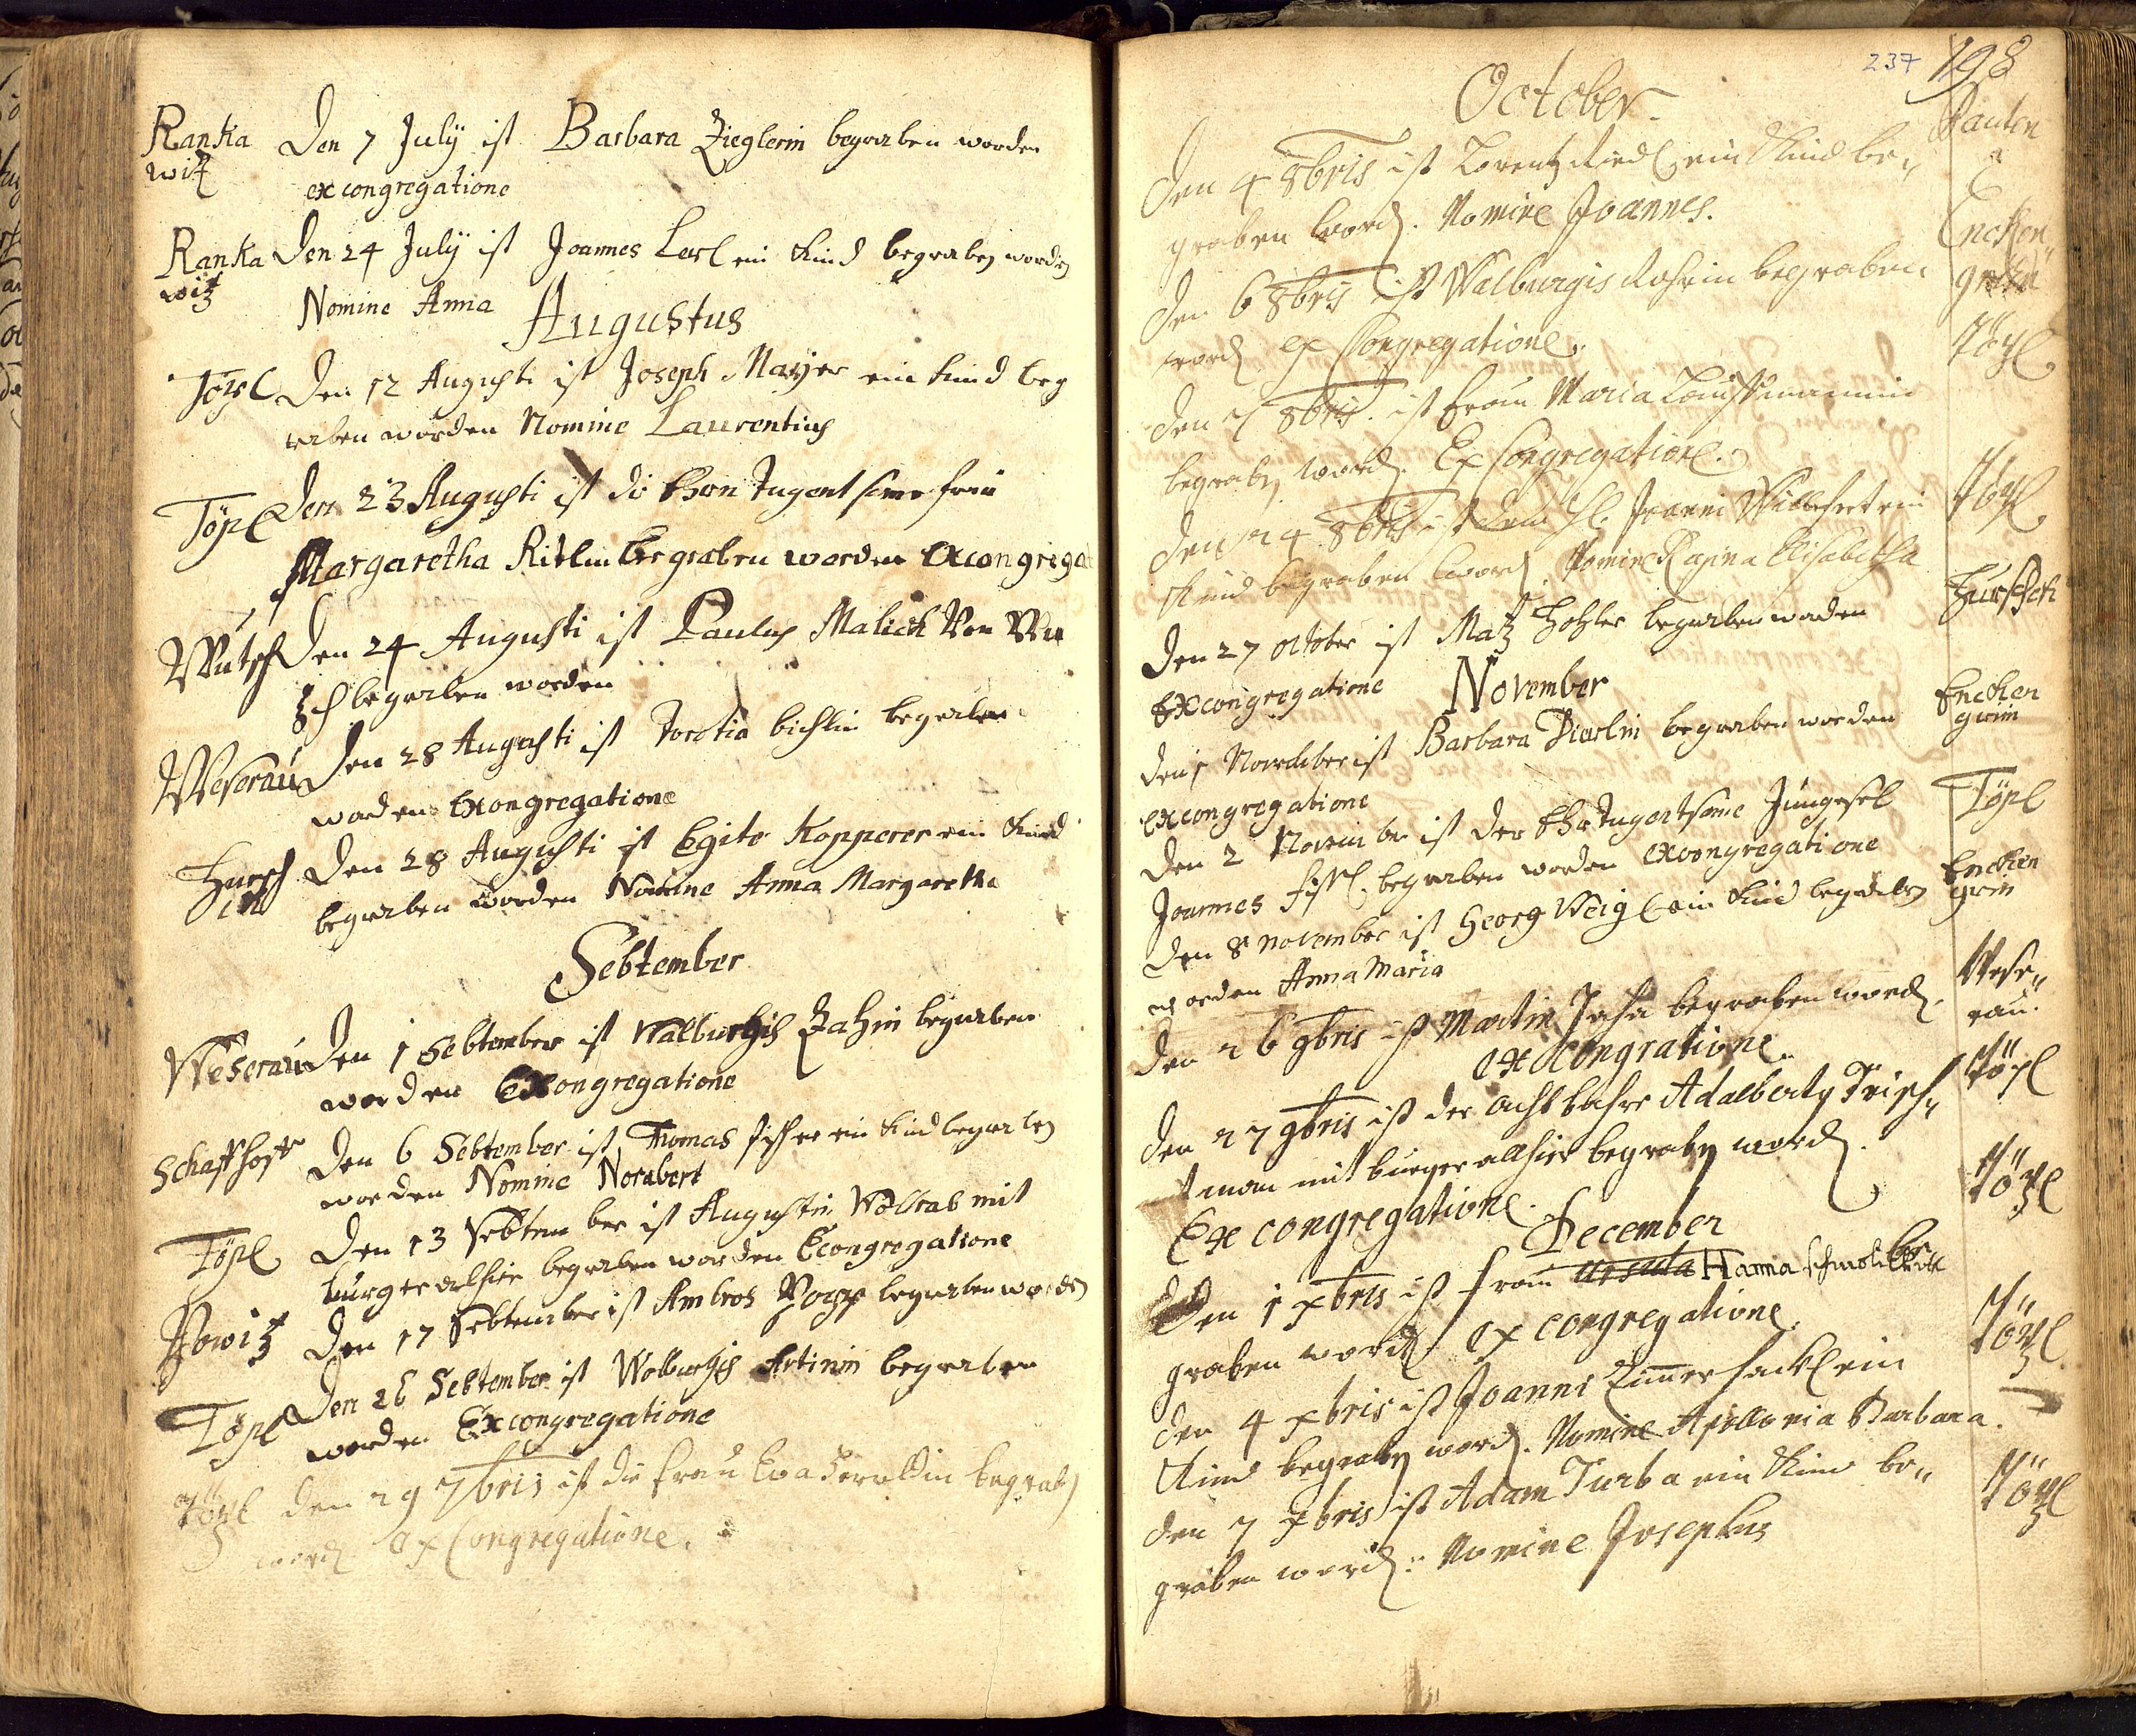 Ranka Den 7 July ist Barbara Zieglerin begraben worden
witz ex congregatione
Ranka Den 24 July ist Joannes Lerl ein Kind begraben worden
witz Nomine Anna
Augustus
Töpl Den 12 Augusti ist Joseph Mayer ein Kind beg
raben worden Nomine Laurentius
Töpl Den 23 Augusti ist die Ehren Tugent same frau
Margaretha Ritlin Begraben worden Excongrega
Wutsch Den 24 Augusti ist Paulus Malick Von Wu
tsch begraben worden
Weserau Den 28 Augusti ist begraben
worden Excongregatione
Hursch Den 28 Augusti ist Egite Kopperer ein Kind
ik begraben worden Nomine Anna Margaretha
Sebtember
Weserau Den 1 Sebtember ist Walburgis Zahin begraben
worden Excongregatione
Schaffhoff Den 6 Sebtember ist Thomas fischer ein Kind begraben
worden Nomine Norbert
Töpl Den 13 Sebtember ist Augustin Wollrab mit
burger alhier begraben worden Econgregatione
Den 17 Sebtember ist Ambros Popp begraben worden
Töpl Den 26 Sebtember ist Wolburgis Artinin begraben
worden Excongregatione
Töpl den 29 7bris ist die frau Eva begraben
word ex Congregatione.
237 198
October.
den 4 8bris ist Lorentz Riedl ein Kind be„
graben word. Nomine Joannes.
den 6 8bris ist Walburgis begraben Encken„
word ex Congregatione. grün
den 8bris. ist frau Maria Töpl
begraben word. Ex Congregatione.
den 8bris ist dem H. Joanni ein Töpl
Kind begraben word Nomine Regina Elisabetha
Den 27 october ist Matz Hohler begraben worden Hurschk
Excongregatione
November
Den 1 November ist Barbara begraben worden Encken
excongregatione grün
Den 2 November ist der Ehr Tugentsame Jungesel Töpl
Joannes begraben worden excongregatione
Den 8 november ist Georg Weigl ein Kind begraben Encken
worden Anna Maria grün
den 26 9bris ist Martin begraben word. Wese„
ex congratione. rau.
den 27 9bris ist der achtbahre Adalberty Teisch„ Töpl
tman mitburger allhier begraben word.
Ex congregatione.
December
Den 1 xbris ist frau Ursula Hanna be Töpl
graben word ex congregatione.
den 4 xbris ist Joanni Zimmerhackl ein Töpl
Kind begraben word. Nomine Apollonia Barbara.
den 7 xbris ist Adam Turba ein Kind be„ Töpl
graben word: Nomine Josephus